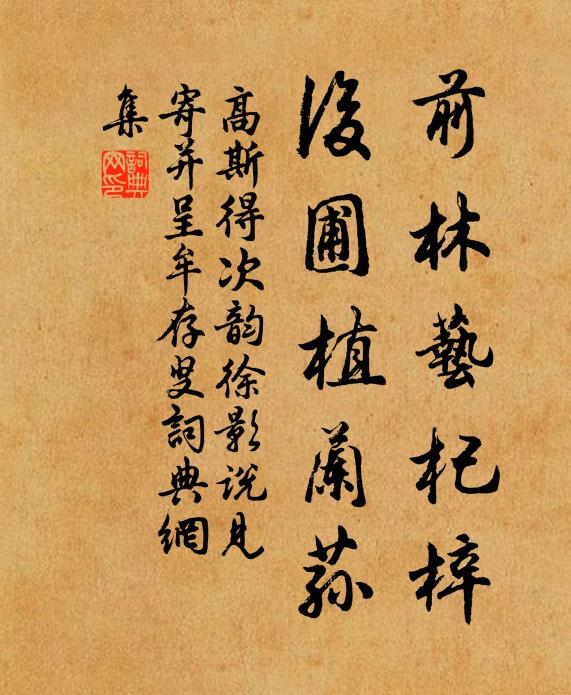 前林藝杞梓
後圃植蘭蓀
高斯得次韵徐影說見
寄并呈牟存叟詞典網
集
詞典
网印